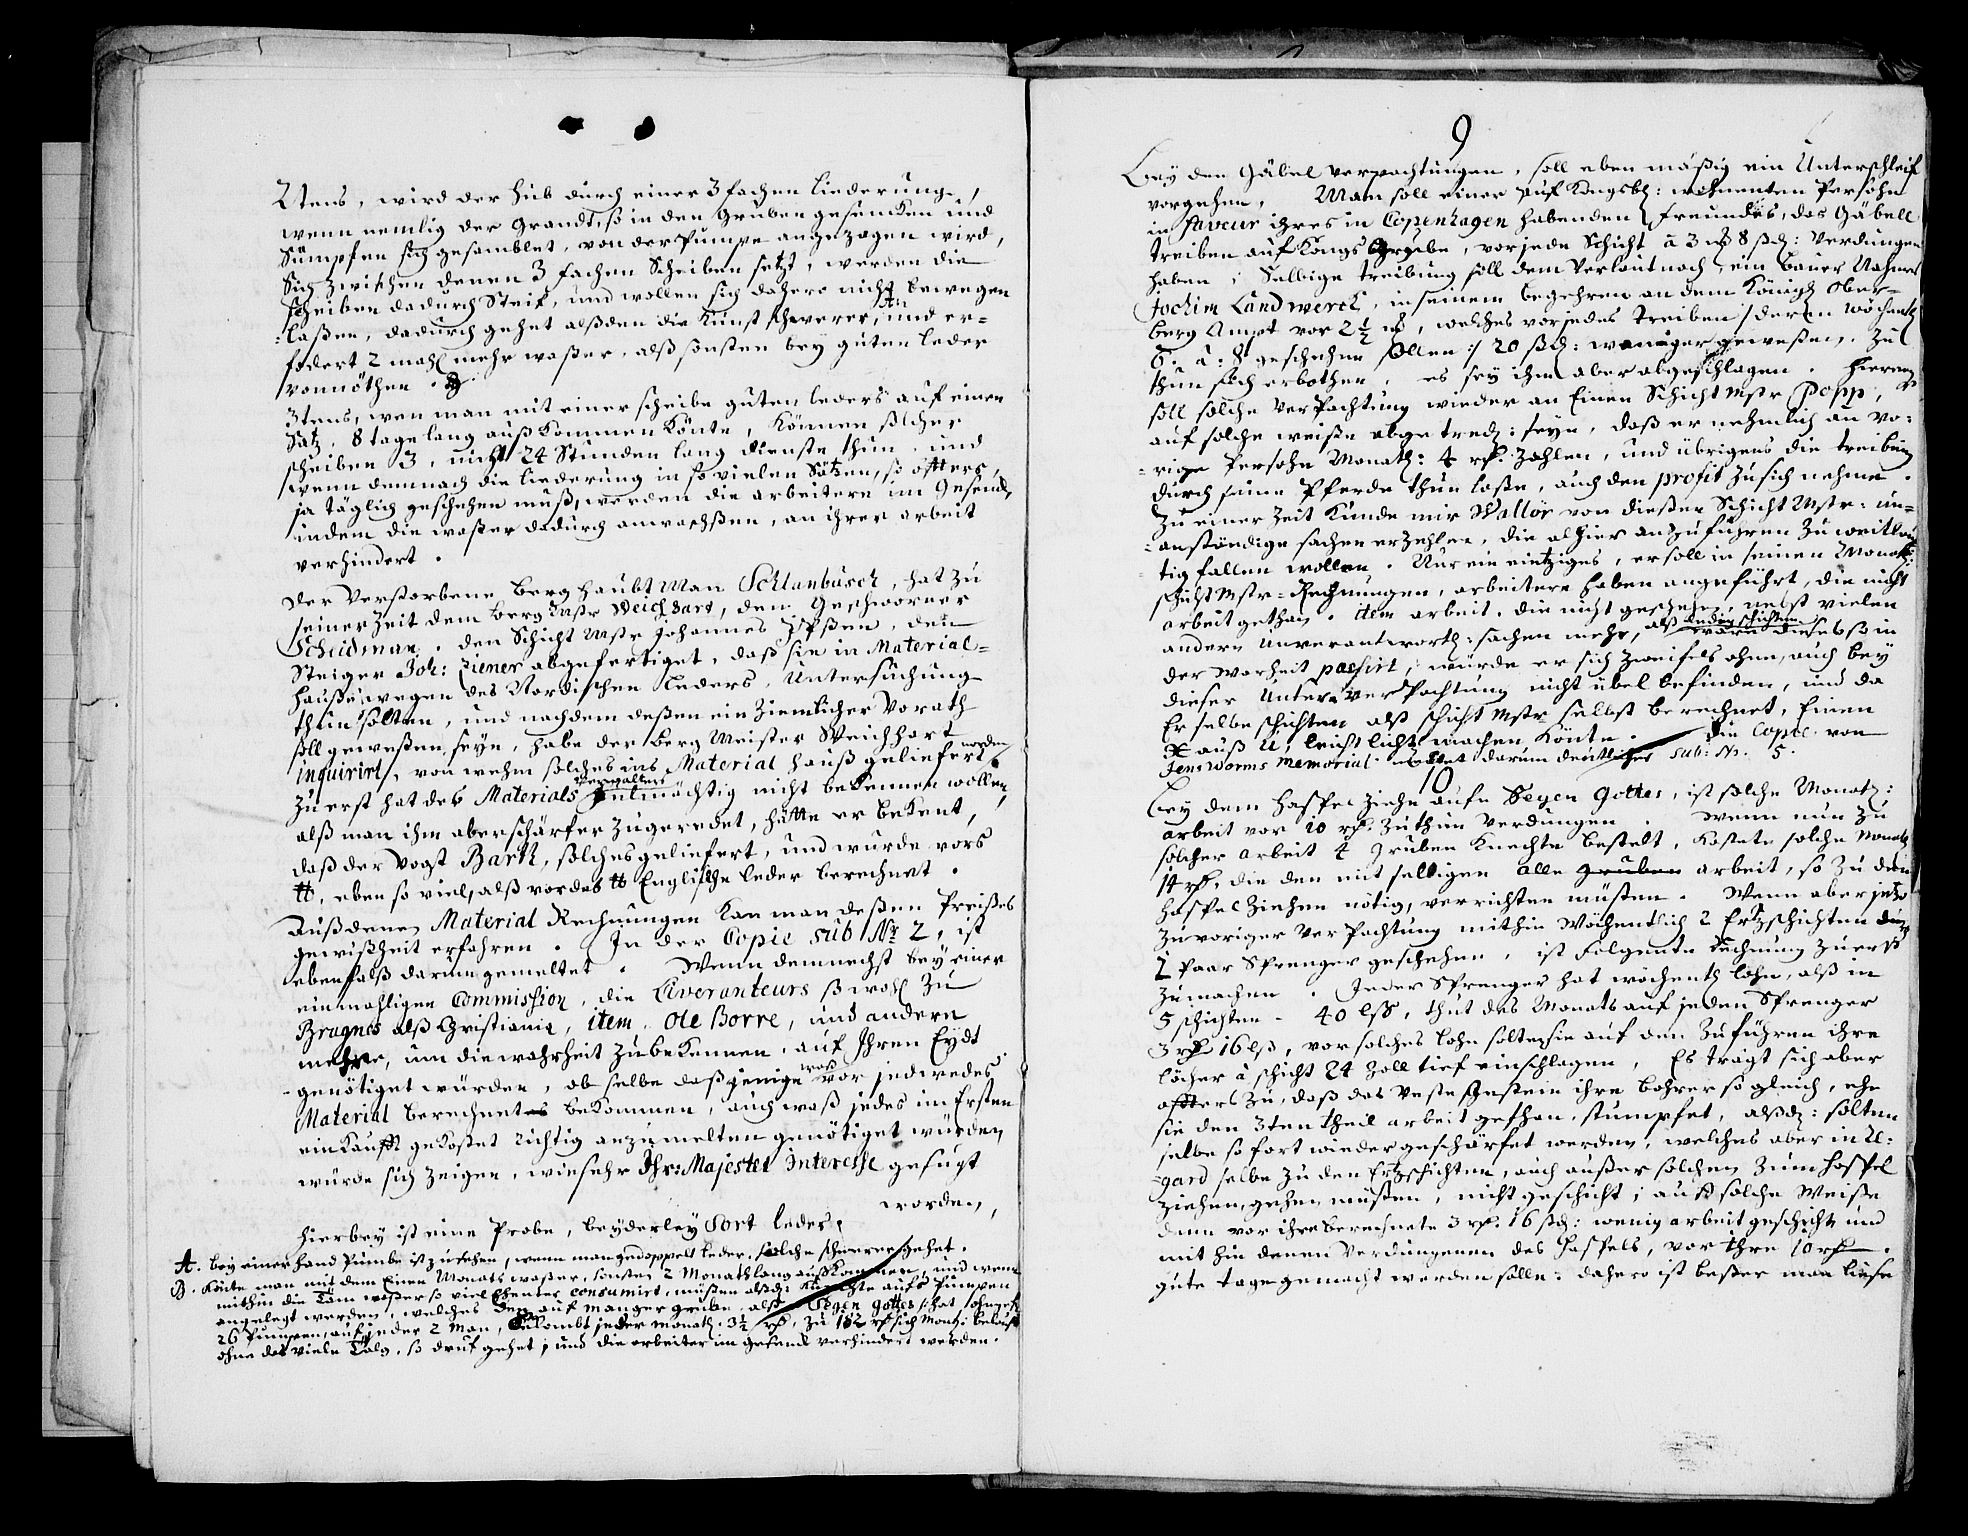 2tens, wird der hub durch einer 3 fachen Liederung,
wenn nemlig der Grandt, so in den Gruben gesuncken und
Sümpfen sich gesamblet, von der Pumpe angezogen wird,
Sich zwischen denen 3 fachen Scheiben setzt, werden die
scheiben dadurch Steif, und wollen sich dahero nicht bewegen
laßen, dadurch gehet alßden die Kunst schwerer, und er-
fodert 2 mahl mehr waßer, alß sonsten bey guten leder
vonnöthen.
3tens, wen man mit einer scheibe guten leders auf einen
Satz, 8 tage lang auß kommen könte, können solcher
scheiben 3, nicht 24 Stunden lang dienste thun, und
wenn demnach die liederung in so vielen Sätzen, so öffters,
ja täglich geschehen muß, werden die arbeitere im Gesenck,
indem die waßer dadurch anwachßen, an ihrer arbeit
verhindert.
Der Verstorbene Berghaubt Man Schlanbusch, hat zu
seiner Zeit dem Berg Mstr Weichhart, dem Geschworner
Scheidman, den Schicht Mstr Johannes Ipßen, den
Steiger Joh: Ziener abgefertiget, daß sie in Material-
hauße wegen des Nordischen Leders, Untersuchung
thun solten, und nachdem deßen ein Ziemlicher Vorath
soll geweßen seyn, habe der Berg Meister Weichhart
inquirirt, von wehm solches ins Material hauß geliefert worden
Zuerst hat des Materials Verwalters Fulmächtig nicht bekennen wollen,
alß man ihm aber schärfer zugeredet, hätte er bekent,
daß der Vogt Barth, solches geliefert, und wurde vors
℔, eben so viel, alß vor das ℔ Englische leder berechnet.
Auß denen Material Rechnungen kan man deßen Preißes
gewißheit erfahren. In der Copie sub Nr 2, ist
ebenfalß darum gemeltet. Wenn demnechst bey einer
einmahligen Commission, die Liveranteurs so wohl zu
Bragnes alß Christiania, item, Ole Borre, und andere
mehre, um die wahrheit zu bekennen, auf Ihren Eydt
genötiget würden, ob selbe daß jenige waß vor jedwedes
Material berechnet bekommen, auch waß jedes im Ersten
einkaufft gekostet richtig anzumelten genötiget würden,
würde sich zeigen, wie sehr Ihr: Majestet Interesse gesucht
worden,
hierbey ist eine Probe, beyderley Sort leder,
A. bey einer hand Pumbe ist zu sehen, wenn man gedoppelt leder, solche schwerer gehet.
B. Könte man mit dem Einen Monats waßer, sonsten 2 Monath lang auß Kommen, und wenn
mithin die Täm waßer so viel ehender consumirt, müßen alßd: Knechte aufs Pumpen
angelegt werden, welches den auf mancher grube, alß Segen Gottes hat
26 Pumpen, auf jeder 2 Man, bekombt jeder Monath. 3½ rß, zu 182 rß sich Month: beläuft
ohne das viele Talg, so druf gehet, und die arbeiter im gesenck verhindert werden.
9
Bey den Gäbel verpachtungen, soll eben mäßig ein Unterschleif
vorgehen, Man soll einer auf Kongsb: wohnenten Persohn
in faveur ihres in Copenhagen habenden Freundes, das Gäbell
treiben auf Kongs Grube, vor jede Schicht à 3 8 ßd: Verdungen
haben, Selbige treibung soll dem Verlaut nach, ein Bauer Nahmens
Jochim Landwerck, in seinem begehren an dem Königl Ober-
berg Ampt vor 2½, welches vor jedes treiben / deren wöchentl
6. à. 8 geschehen sollen :/ 20 ßd: weniger geweßen, zu
thun sich erbothen, es sey ihm aber abgeschlagen. Hierauf
soll solche Verpachtung wieder an Einen Schicht Mstr Popp,
auf solche weiße abgetred: seyn, daß er nehmlich an vo-
rige Persohn Monath: 4 rß. Zahlen, und übrigens die treibung
durch seine Pferde thun laße, auch den profit zu sich nehme.
Zu einer Zeit kunde mir Wallör von dießen Schicht Mstr: un-
anständige sachen erzehlen, die alhier anzuführen zu weitläuf
tig fallen wollen. Nur ein eintziges, er soll in seinen Monatl:
schicht Mstr-Rechnungen, arbeitere haben angeführt, die nicht
arbeit gethan, item arbeit, die nicht geschehen, nebst vielen
andern Unverantworth: sachen mehr, alß wäre dießes in
der Warheit passirt, würde er sich zweifels ohne, auch bey
dieser Unter Verpachtung nicht übel befinden, und da
Er selbe schichten alß schicht Mstr selbst berechnet, Einen
X auß U, leicht licht machen Könte. Die Copie von
Jens Worms Memorial meltet darum deutlicher sub: N. 5.
10
Bey dem Haspel ziehe aufn Segen Gottes, ist solche Monatl:
arbeit vor 10 rß. zu thun Verdungen. Wenn nun zu
solcher arbeit 4 gruben Knechte bestelt, kostete solche Monatl
14 rß, die den mit selbigen alle gruben arbeit, so zu dem
haspel ziehen nötig, verrichten müsten. Wenn aber jetzo
zu voriger Verpachtung mithin Wöchentlich 2 Ertzschichten durch
2 Paar Sprenger geschehen, ist folgente Rechnung zuerst
zu machen. Jeder Sprenger hat wöchentl lohn, alß in
5 schichten - 40 lß, thut des Monats auf jeden Sprenger
3 rß 16 lß, vor solches lohn solten sie auf den zuführen ihre
löcher à schicht 24 Zoll tief einschlagen, Es trägt sich aber
offters zu, daß das veste gestein ihre bohrer so gleich, ehe
sie den 3ten theil arbeit gethan, stumpfet, alßd: solten
selbe so fort wieder geschärfet werden, welches aber in re-
gard selbe zu den Ertzschichten, auch außer solchen zum haspel
ziehen, gehen müsten, nicht geschicht, auf solche Weiße
denn vor ihre berechnete 3 rß. 16 ßd: wenig arbeit geschicht und
mit hin denen Verdungenen des Haspels, vor ihre 10 rß.
gute tage gemacht werden solle: dahero ist beßer man ließe